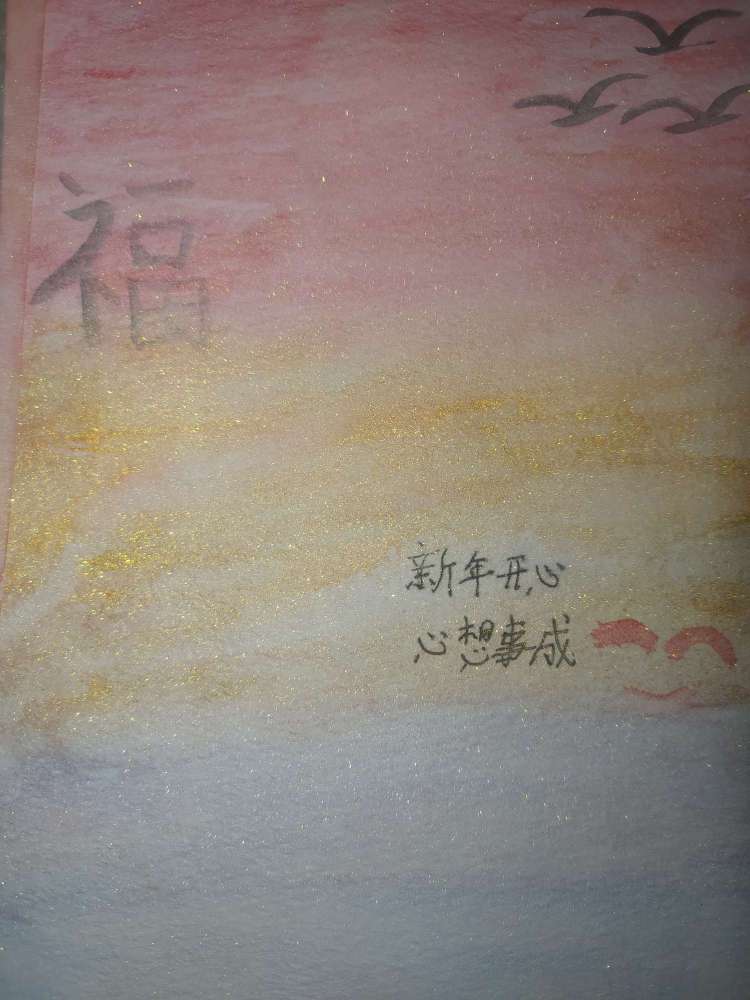 福
新年开心
心想事成